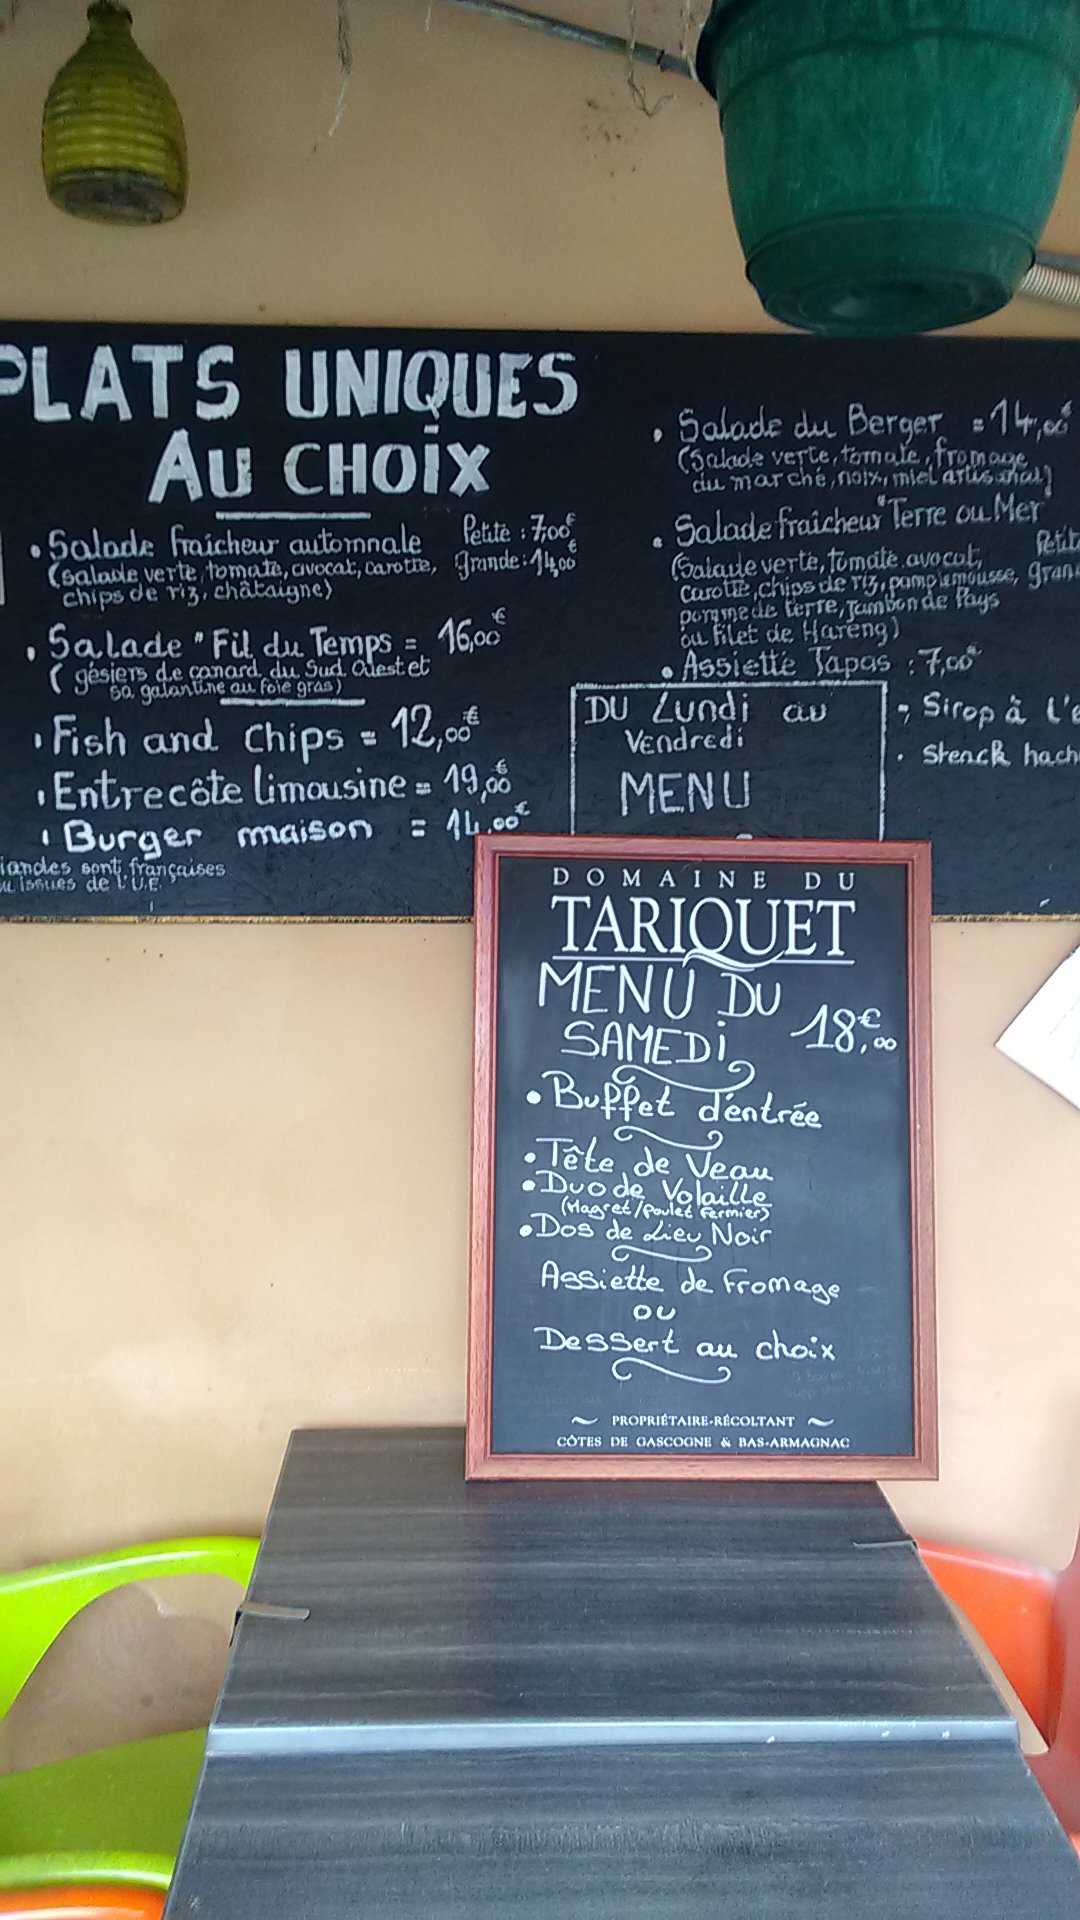 PLATS UNIQUES
AU CHOIX
• Salade fraîcheur automnale Petite : 7,00€
(Salade verte, tomate, avocat, carotte, grande : 14,00€
chips de riz, châtaigne)
• Salade "Fil du Temps = 16,00€
( gésiers de canard du Sud Ouest et
sa galantine au foie gras)
Fish and chips = 12,00€
Entrecôte limousine = 19,00€
Burger maison = 14,00€
iandes sont françaises
ou issues de l'U.E.
• Salade du Berger = 14,00€
(Salade verte, tomate, fromage
du marché, noix, miel artisanal)
• Salade fraîcheur "Terre ou Mer"
Petit
(Salade verte, tomate avocat,
carotte, chips de riz, pamplemousse, gran
pomme de terre, jambon de Pays
ou Filet de Hareng)
• Assiette Tapas : 7,00€
DU Lundi au
Vendredi
MENU
- Sirop à l'e
• Steack hach
DOMAINE DU
TARIQUET
MENU DU
SAMEDI 18,00€
• Buffet d'entrée
• Tête de Veau
• Duo de Volaille
(Magret/poulet Fermier)
• Dos de Lieu Noir
Assiette de fromage
OU
Dessert au choix
PROPRIÉTAIRE-RÉCOLTANT
CÔTES DE GASCOGNE & BAS-ARMAGNAC